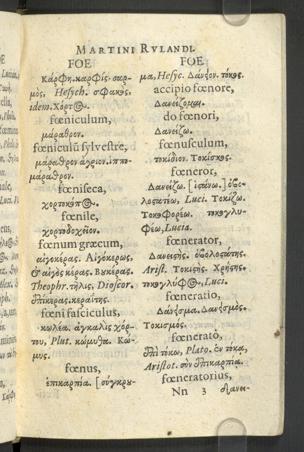 MARTINI RVLANDI
FOE
κάρφη. καρφίς. σαρ-
μὸς, Hesych. σφακος,
idem. χόρτος.
fœniculum,
μάραθρον.
fœniculū sylvestre,
μάραθρον ἄγριον. ἱππο-
μάραθρον.
fœniseca,
χορτοκόπος.
fœnile,
χορτοδοχεῖον.
fœnum græcum,
αἰγοκέρας. Αἰγόκερως,
& αἰγὸς κέρας. Βούκερας.
Theophr. τῆλις, Dioscor.
ἐπίκερας. κεραΐτης.
fœni fasciculus,
κωλέα. ἀγκαλὶς χόρ-
του, Plut. κώμυθα. Κώ-
μυς.
fœnus,
ἐπικαρπία. [σύγκρυ-
FOE
μα, Hesyc. Δάνειον. τόκος.
accipio fœnore,
Δανείζομαι.
do fœnori,
Δανείζω.
fœnusculum,
τοκίδιον. Τοκίσκος.
fœneror,
Δανείζω. [ἱστάνω.] ὀβο-
λοστατέω, Luci. Τοκίζω.
Τοκοφορέω. τοκογλυ-
φέω, Lucia.
fœnerator,
Δανειστής. ὀβολοστάτης.
Arist. Τοκιστής. Χρήστης.
τοκογλύφος, Luci.
fœneratio,
Δάνεισμα. Δανεισμός.
Τοκισμός.
fœnerato,
ἐπὶ τόκῳ, Plato. ἐν τόκῳ,
Aristot. σὺν ἐπικαρπίᾳ.
fœneratorius,
Nn 3 δανει-